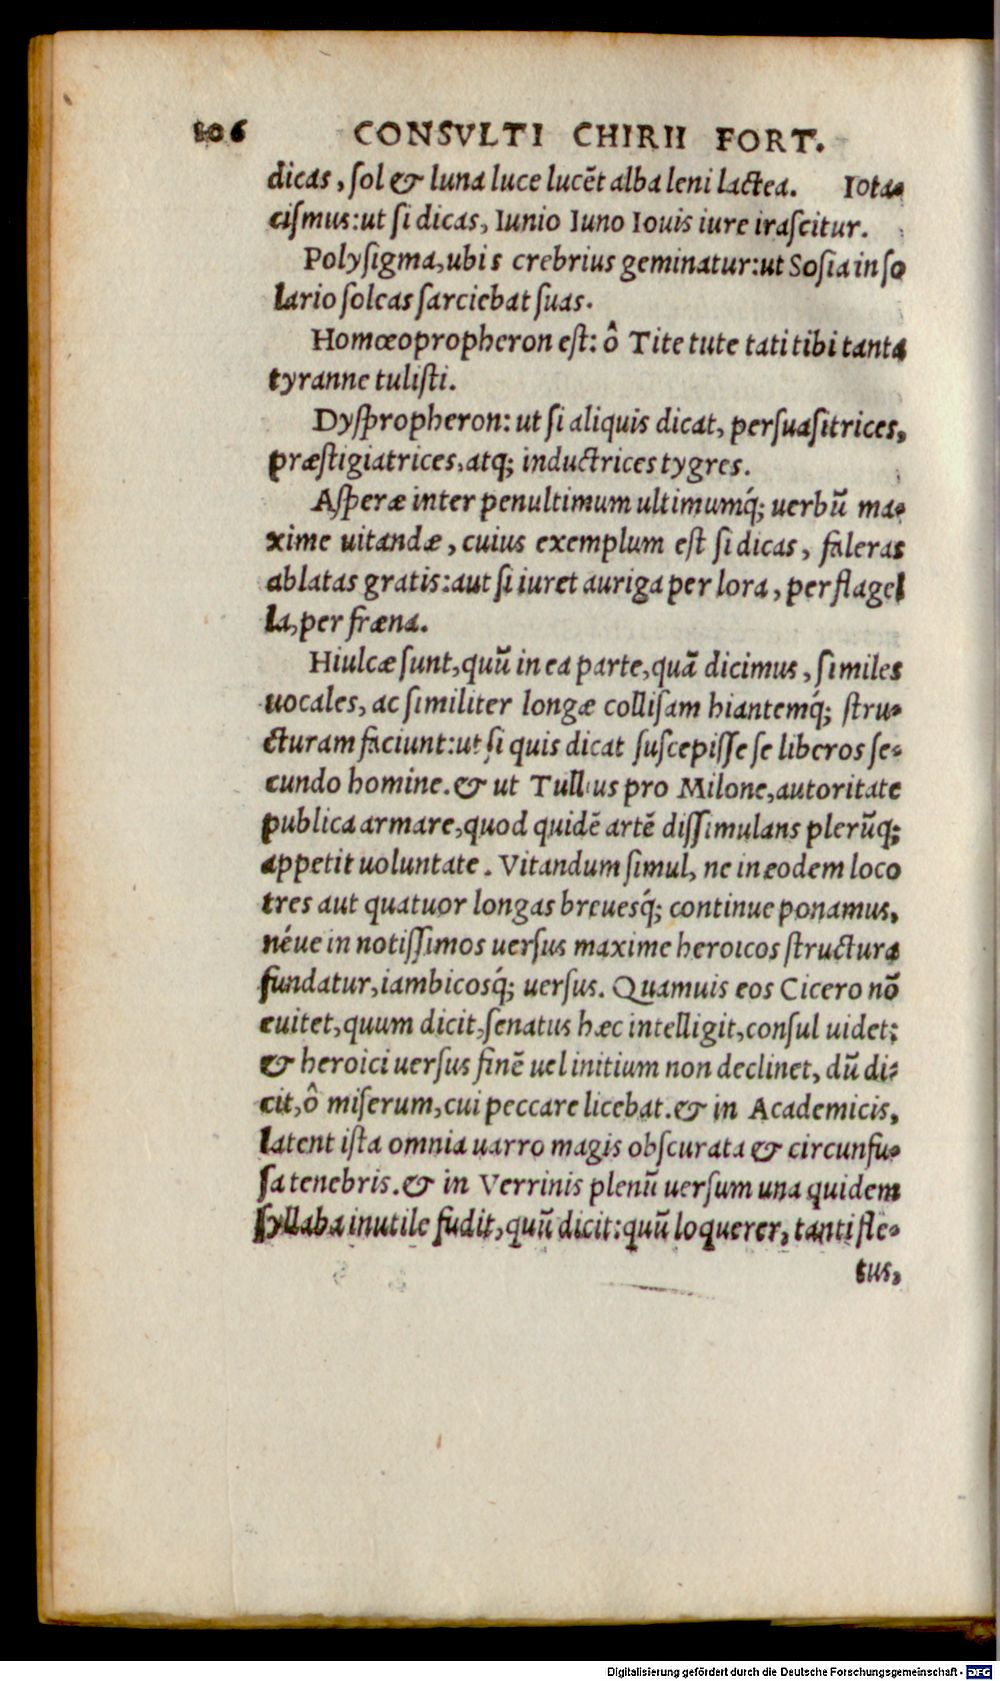 106 CONSVLTI CHIRII FORT.
dicas, ſol & luna luce lucẽt alba leni lactea. Iota-
ciſmus: ut ſi dicas, Iunio Iuno Iouis iure iraſcitur.
Polyſigma, ubi s crebrius geminatur: ut Soſia in ſo
lario ſoleas ſarciebat ſuas.
Homœopropheron eſt: ô Tite tute tati tibi tanta
tyranne tuliſti.
Dyſpropheron: ut ſi aliquis dicat, perſuaſitrices,
præſtigiatrices, atq; inductrices tygres.
Aſperæ inter penultimum ultimumq́; uerbũ ma-
xime uitandæ, cuius exemplum eſt ſi dicas, faleras
ablatas gratis: aut ſi iuret auriga per lora, per flagel
la, per fræna.
Hiulcæ ſunt, quũ in ea parte, quã dicimus, ſimiles
uocales, ac ſimiliter longæ colliſam hiantemq́; ſtru-
cturam faciunt: ut ſi quis dicat ſuſcepiſſe ſe liberos ſe-
cundo homine. & ut Tullius pro Milone, autoritate
publica armare, quod quidẽ artẽ diſſimulans plerũq;
appetit uoluntate. Vitandum ſimul, ne in eodem loco
tres aut quatuor longas breuesq́; continue ponamus,
néue in notiſſimos uerſus maxime heroicos ſtructura
fundatur, iambicosq́; uerſus. Quamuis eos Cicero nõ
euitet, quum dicit, ſenatus hæc intelligit, conſul uidet:
& heroici uerſus finẽ uel initium non declinet, dũ di-
cit, ô miſerum, cui peccare licebat. & in Academicis,
latent iſta omnia uarro magis obſcurata & circunfu-
ſa tenebris. & in Verrinis plenũ uerſum una quidem
ſyllaba inutile fudit, quũ dicit: quũ loquerer, tanti fle-
tus,
Digitalisierung gefördert durch die Deutsche Forschungsgemeinschaft - DFG